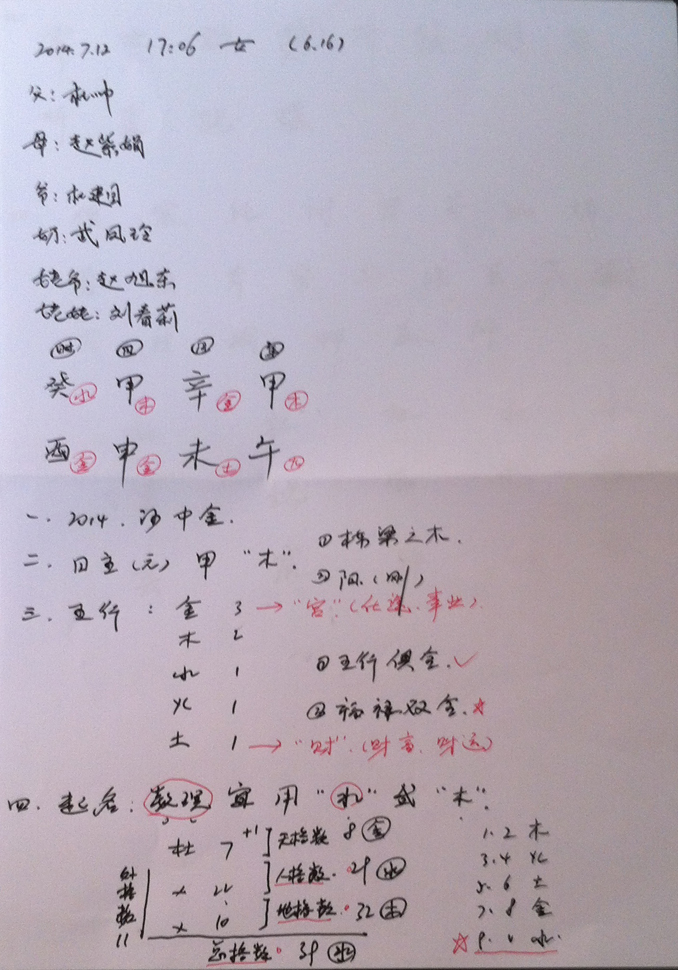 2014.7.12 17:06 女 (6.16)
父:杜帅
母:赵紫娟
爷:杜建国
奶:武凤玲
姥爷:赵旭东
姥姥:刘春莉
时 日 月 年
癸水 甲木 辛金 甲木
酉金 申金 未土 午火
一. 2014. 沙中金.
二. 日主(元) 甲 "木". ①栋梁之木.
②阳(刚)
三. 五行: 金 3 → "官". (仕途、事业)
木 2
水 1 ①五行俱全. ✓
火 1 ②福禄双全. ★
土 1 → "财". (财富、财运)
四. 起名: 数理 宜用 "水" 或 "木".
杜 7 +1 ] 天格数 8 金 1.2 木
] 人格数. 29 水 3.4 火
外格数 11 × 22 5.6 土
× 10 ] 地格数. 32 木 7.8 金
总格数. 39 水 ☆ 9.0 水.